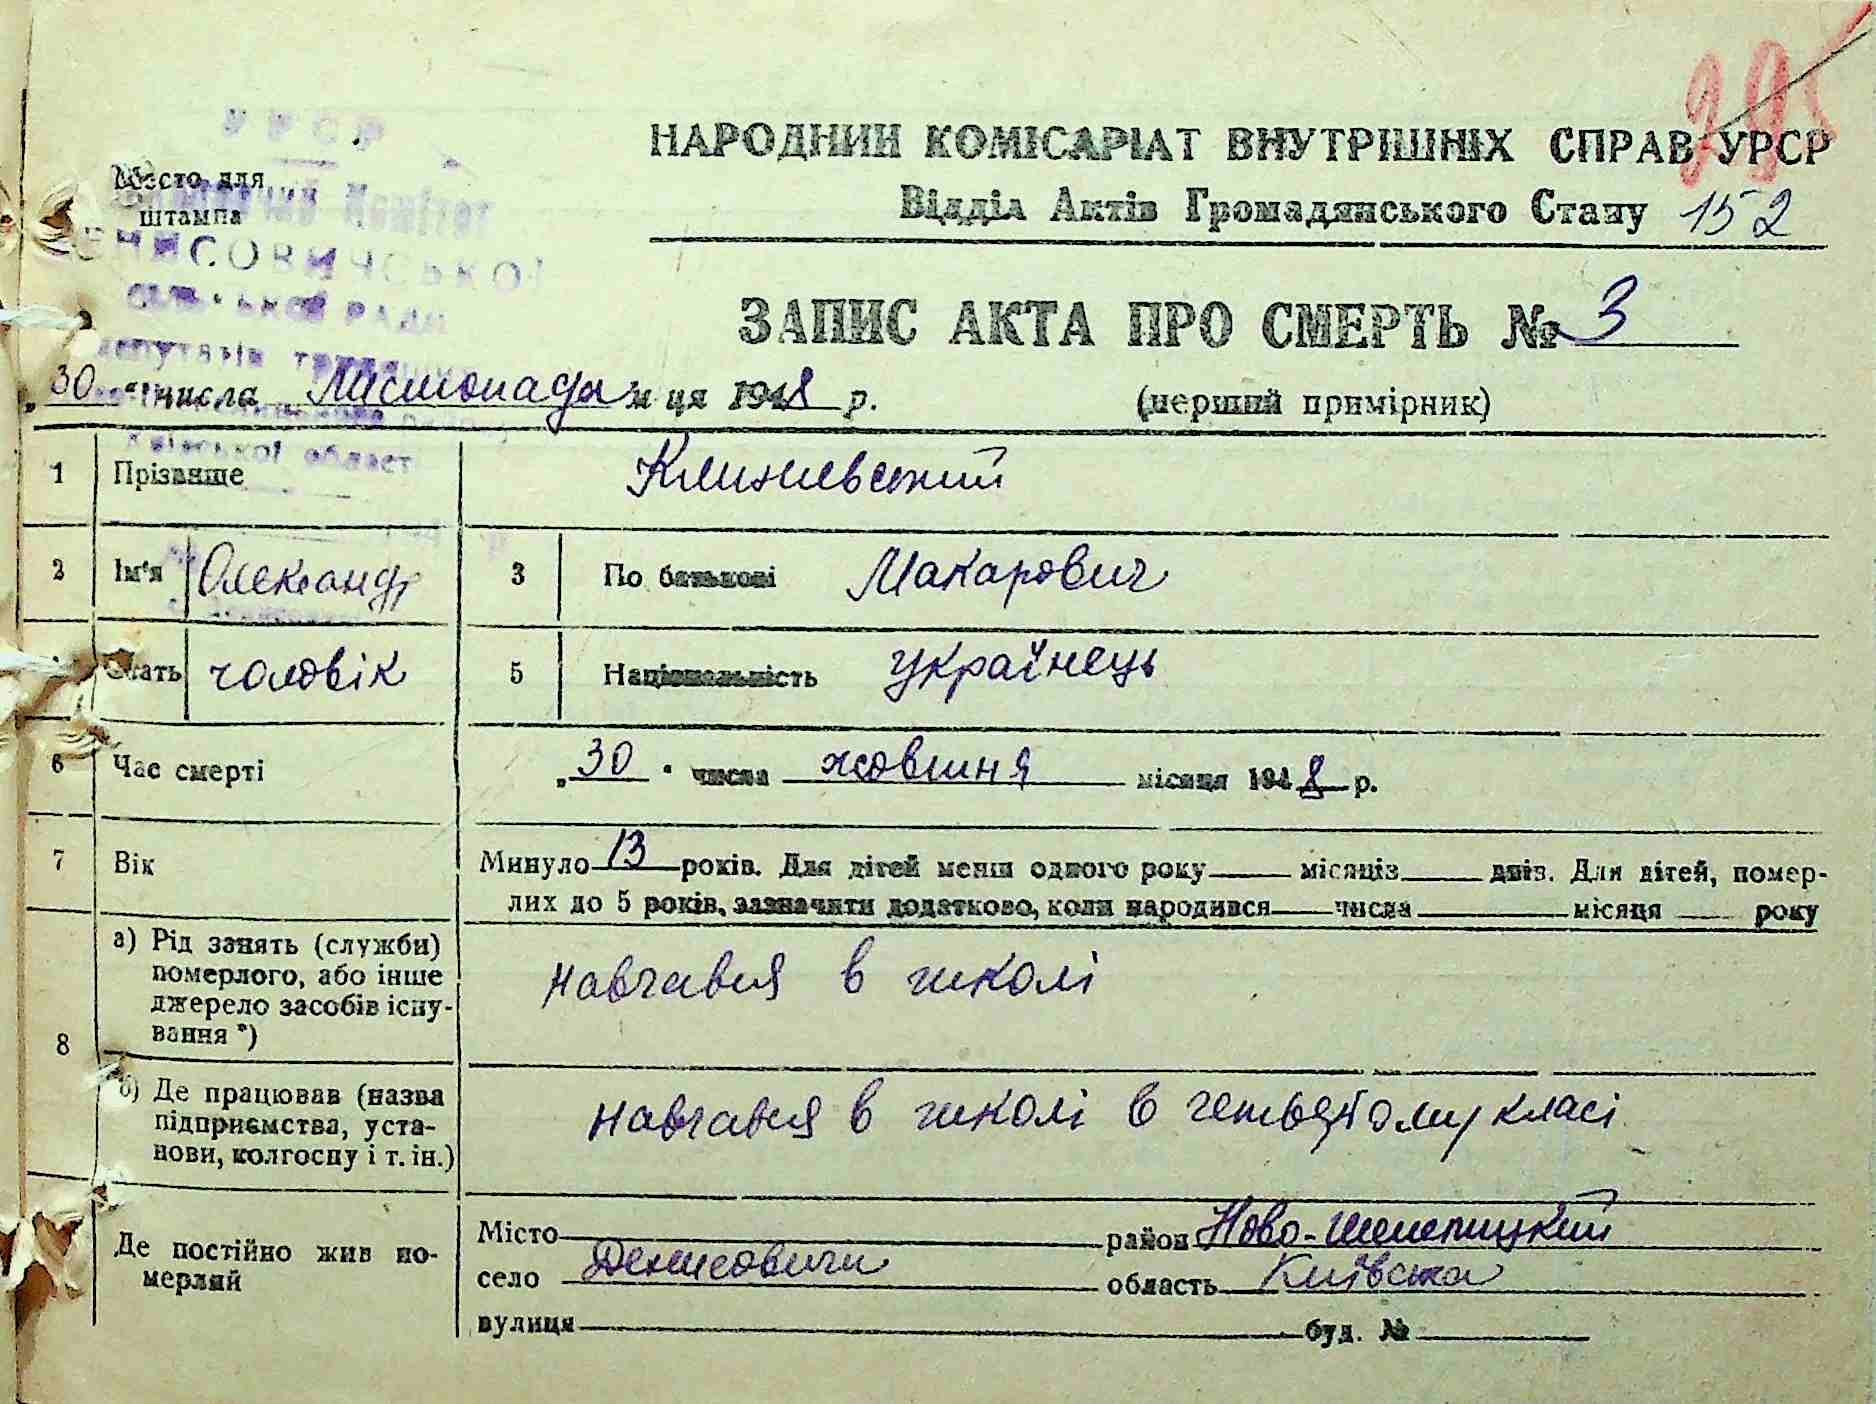 НАРОДНИЙ КОМІСАРІАТ ВНУТРІШНІХ СПРАВ УРСР
Відділ Актів Громадянського Стану 152
УРСР
Место для
штампа
Комітет
СІЛЬСЬКОЙ РАДИ
депутатів
Київської област
ЗАПИС АКТА ПРО СМЕРТЬ № 3
„30“ числа Листопада м-ця 1948 р. (перший примірник)
1 Прізвище Клинневский
2 Ім'я Олександр 3 По батькові Макарович
Стать чоловік 5 Національність українець
6 Час смерті „30“ числа жовтня місяця 1948 р.
7 Вік Минуло 13 років. Для дітей менш одного року місяців днів. Для дітей, помер-
лих до 5 років, зазначити додатково, коли народився числа місяця року
8 а) Рід занять (служби)
померлого, або інше
джерело засобів існу-
вання *)
навчався в школі
б) Де працював (назва
підприємства, уста-
нови, колгоспу і т. ін.)
навчався в школі в четвертому класі
Де постійно жив по-
мерлий
Місто район Ново-Шепелицкий
село Денисовичи область Київська
вулиця буд. №